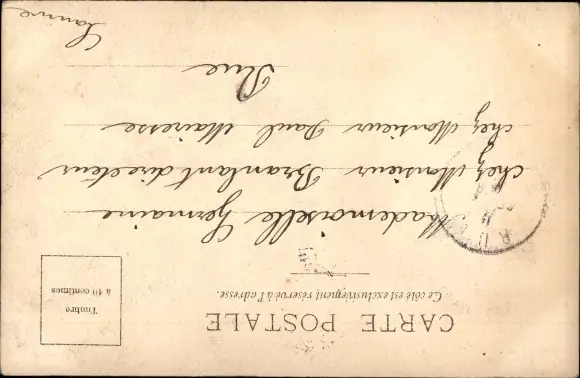 CARTE POSTALE
Ce côté est exclusivement réservé à l'adresse.
Timbre
à 10 centimes
Mademoiselle Germaine
chez Monsieur Branlant directeur
chez Monsieur Paul Mairesse
Rue
Somme
RUE